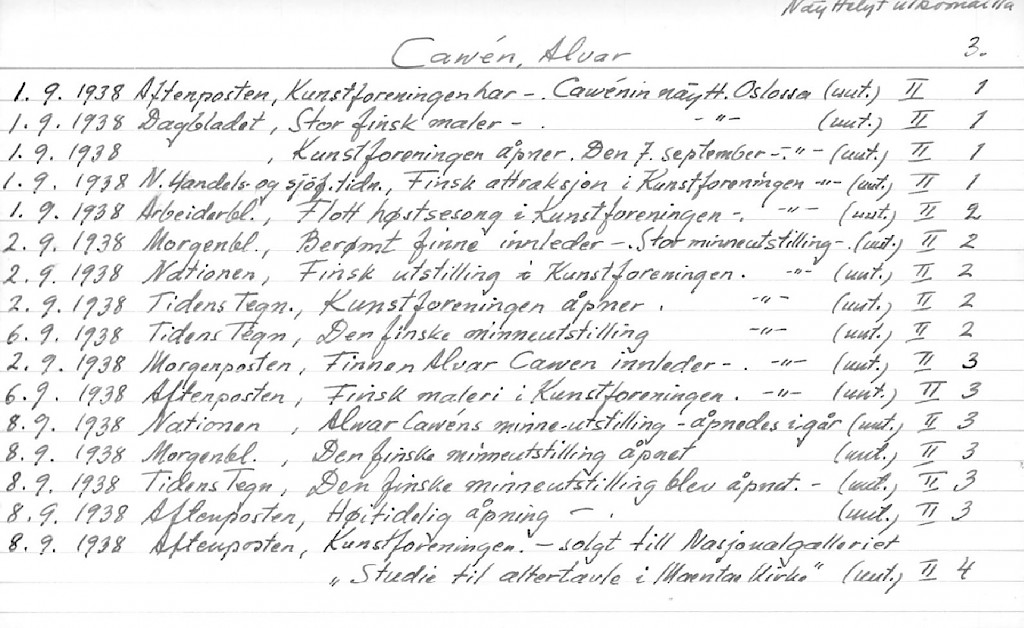 Näyttelyt ulkomailla
Cawén, Alvar 3.
1. 9. 1938 Aftenposten, Kunstforeningen har -. Cawénin näytt. Oslossa (uut.) II 1
1. 9. 1938 Dagbladet, Stor finsk maler - . -"- (uut.) II 1
1. 9. 1938 , Kunstforeningen åpner. Den 7. september -. -"- (uut.) II 1
1. 9. 1938 N. Handels og sjöf. tidn., Finsk attraksjon i Kunstforeningen -"- (uut.) II 1
1. 9. 1938 Arbeiderbl., Flott høstsesong i Kunstforeningen -. -"- (uut.) II 2
2. 9. 1938 Morgenbl., Berømt finne innleder -. Stor minneutstilling -. (uut.) II 2
2. 9. 1938 Nationen, Finsk utstilling i Kunstforeningen. -"- (uut.) II 2
2. 9. 1938 Tidens Tegn., Kunstforeningen åpner . -"- (uut.) II 2
6. 9. 1938 Tidens Tegn, Den finske minneutstilling -"- (uut.) II 2
2. 9. 1938 Morgenposten, Finnen Alvar Cawen innleder - . -"- (uut.) II 3
6. 9. 1938 Aftenposten, Finsk maleri i Kunstforeningen. -"- (uut.) II 3
8. 9. 1938 Nationen , Alvar Cawéns minne-utstilling - åpnedes igår (uut.) II 3
8. 9. 1938 Morgenbl. , Den finske minneutstilling åpnet (uut.) II 3
8. 9. 1938 Tidens Tegn, Den finske minneutstilling blev åpnet. - (uut.) II 3
8. 9. 1938 Aftenposten, Høitidelig åpning - . (uut.) II 3
8. 9. 1938 Aftenposten, Kunstforeningen. - solgt till Nasjonalgalleriet
"Studie til altertavle i Kirke" (uut.) II 4